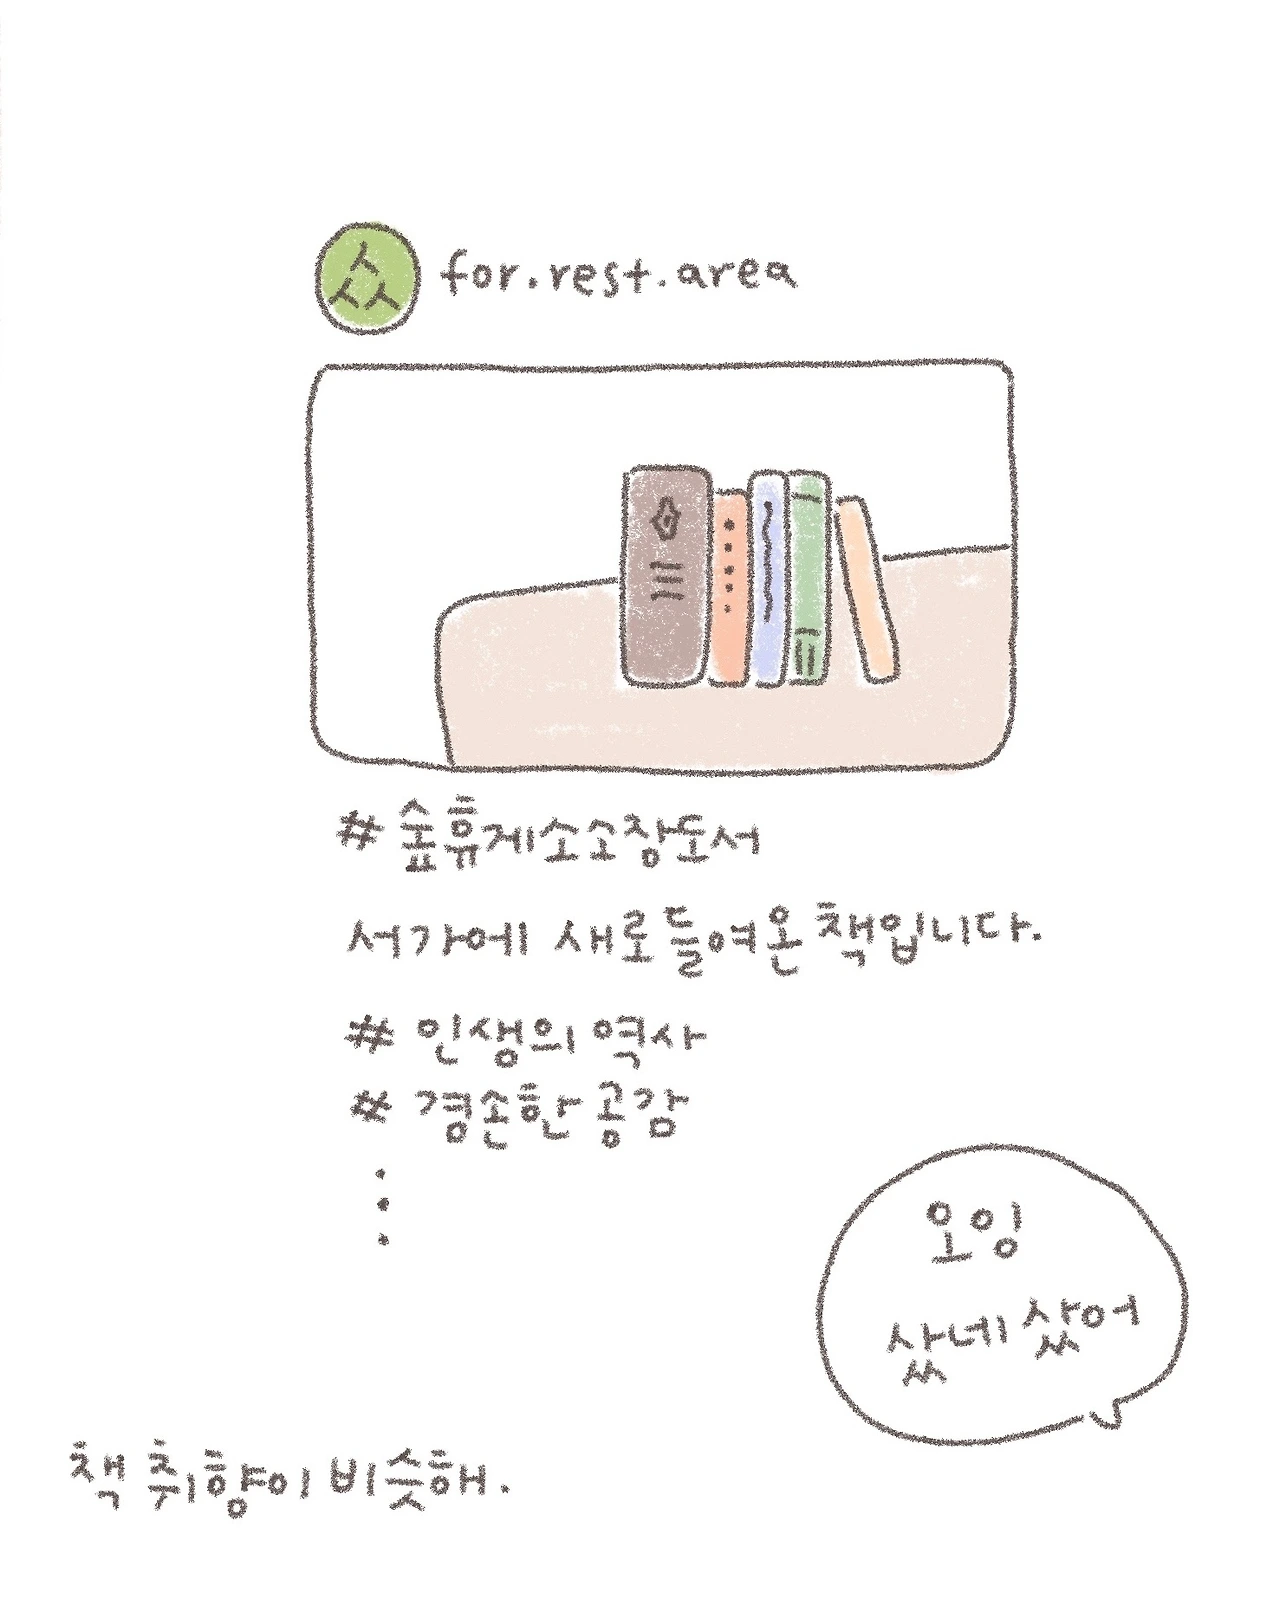 for.rest.area
# 숲휴게소소장도서
서가에 새로 들여온 책입니다.
# 인생의 역사
# 겸손한 공감
오잉
샀네 샀어
책 취향이 비슷해.